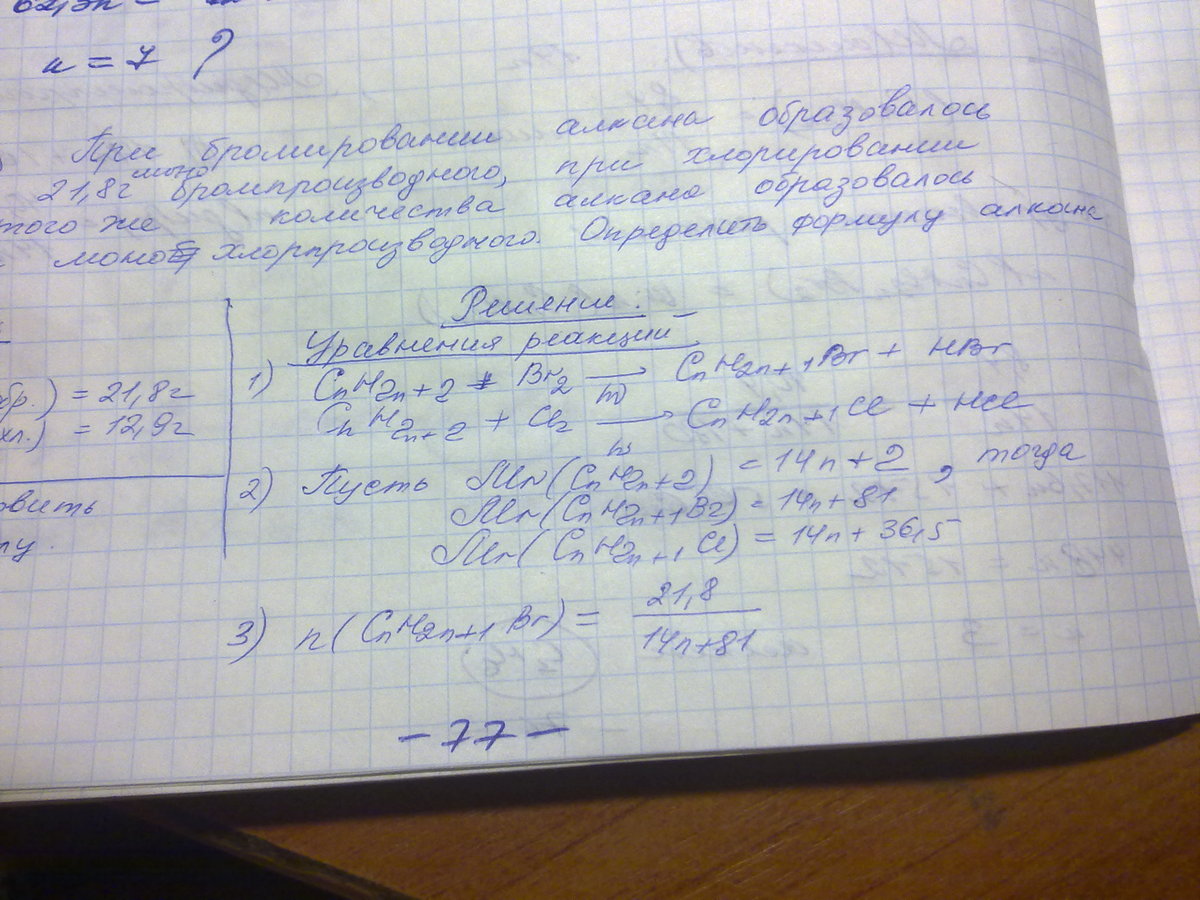 n = 7 ?
При бромировании алкана образовалось
21,8г моно бромпроизводного, при хлорировании
того же количества алкана образовалось
моно хлорпроизводного. Определить формулу алкана
Решение:
Уравнения реакции
1) CnH2n+2 + Br2 → CnH2n+1Br + HBr
hν
= 21,8г
CnH2n+2 + Cl2 → CnH2n+1Cl + HCl
hν
= 12,9г
2) Пусть Mr(CnH2n+2) = 14n+2, тогда
Mr(CnH2n+1Br) = 14n+81
Mr(CnH2n+1Cl) = 14n+36,5
3) n(CnH2n+1Br) = 21,8
14n+81
- 77 -